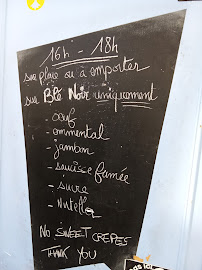 16h - 18h
sur place ou à emporter
sur Blé Noir uniquement
- oeuf
- emmental
- jambon
- saucisse fumée
- sucre
- nutella
NO SWEET CREPES
THANK YOU